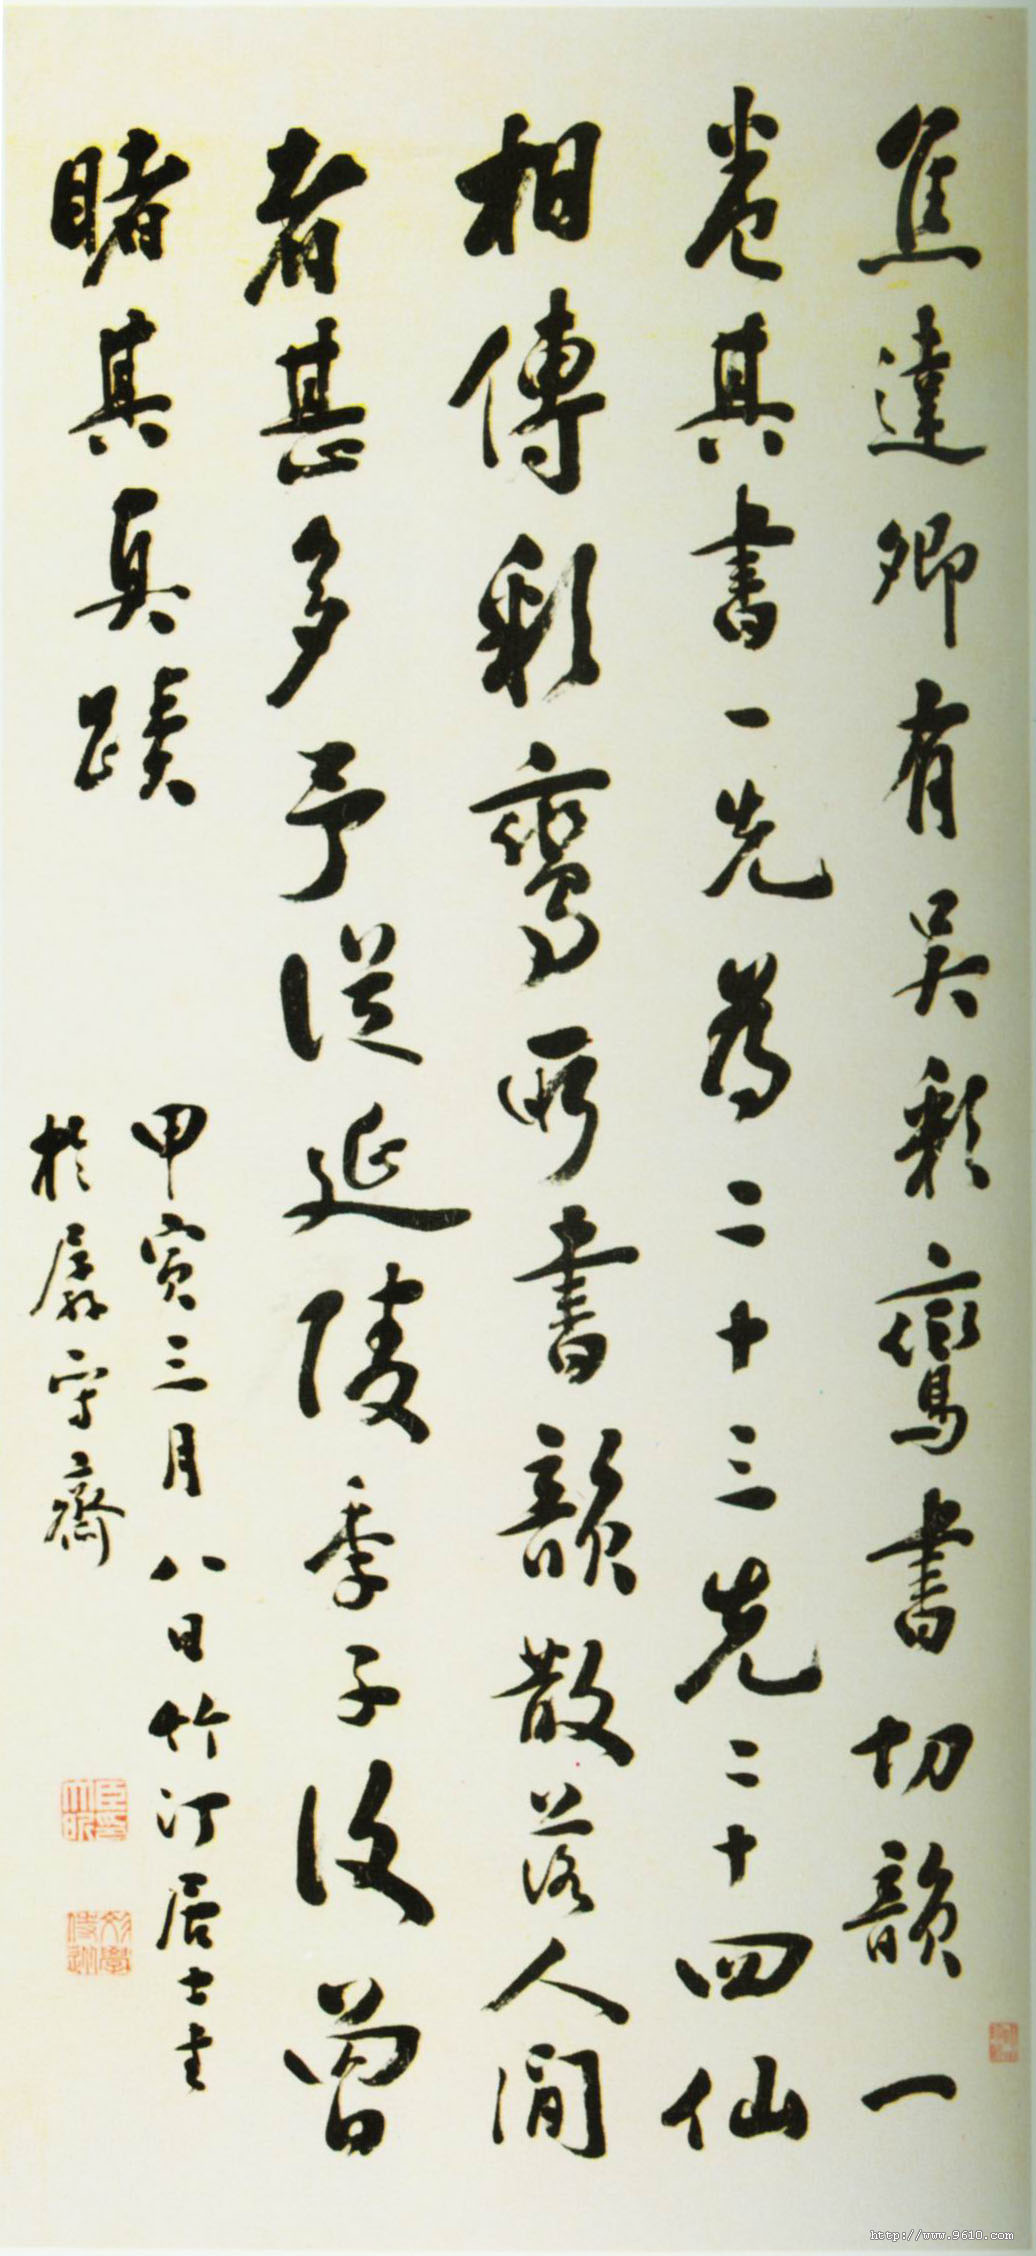 焦達卿有吳彩鸞書切韻一
卷其書一先為二十三先二十四仙
相傳彩鸞所書韻散落人間
者甚多予從延陵季子後曾
睹其真蹟
甲寅三月八日竹汀居士書
於孱守齋
http://www.9610.com